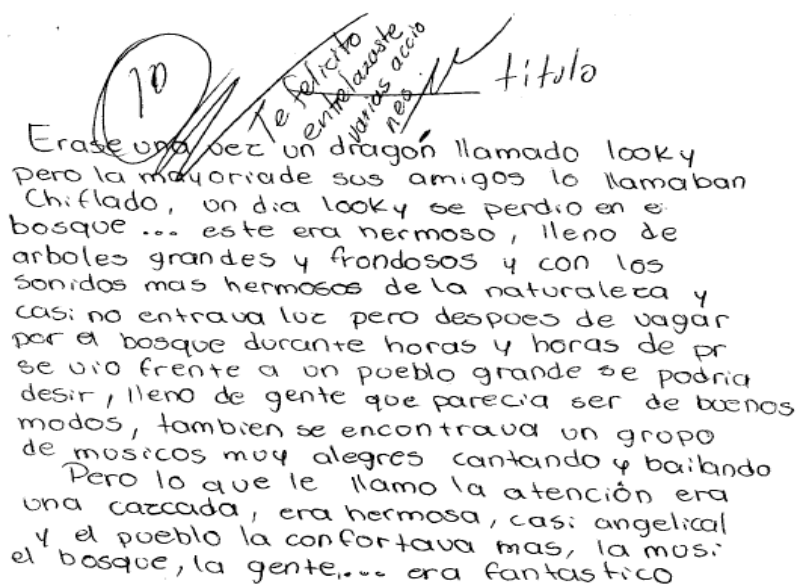 10
Te felicito
entrelazaste
varias accio
nes.
título
Erase una vez un dragón llamado looky
pero la mayoriade sus amigos lo llamaban
Chiflado, un dia looky se perdio en e
bosque ... este era hermoso, lleno de
arboles grandes y frondosos y con los
sonidos mas hermosos de la naturaleza y
casi no entrava luz pero despues de vagar
por el bosque durante horas y horas de pr
se vio frente a un pueblo grande se podria
desir, lleno de gente que parecia ser de buenos
modos, tambien se encontrava un grupo
de musicos muy alegres cantando y bailando
Pero lo que le llamo la atención era
una cazcada, era hermosa, casi angelical
y el pueblo la confortava mas, la musi
el bosque, la gente,... era fantastico